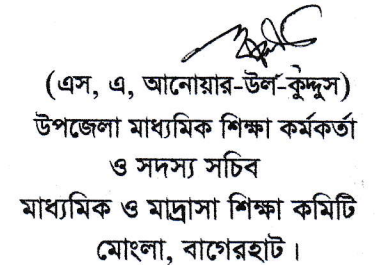 (এস, এ, আনোয়ার-উর্ল-কুদ্দুস)
উপজেলা মাধ্যমিক শিক্ষা কর্মকর্তা
ও সদস্য সচিব
মাধ্যমিক ও মাদ্রাসা শিক্ষা কমিটি
মোংলা, বাগেরহাট।